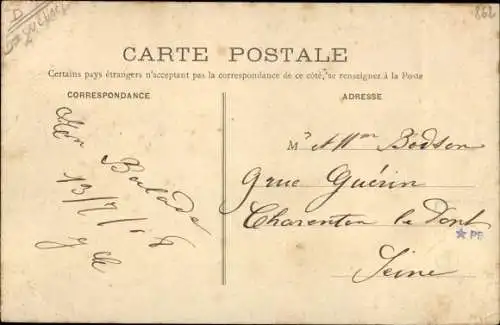 862
CARTE POSTALE
Certains pays étrangers n'acceptant pas la correspondance de ce côté, se renseignez à la Poste
CORRESPONDANCE
ADRESSE
En Balade
13/7/08
M
Bodson
9 rue Guérin
Charenton le Pont
Seine
PS